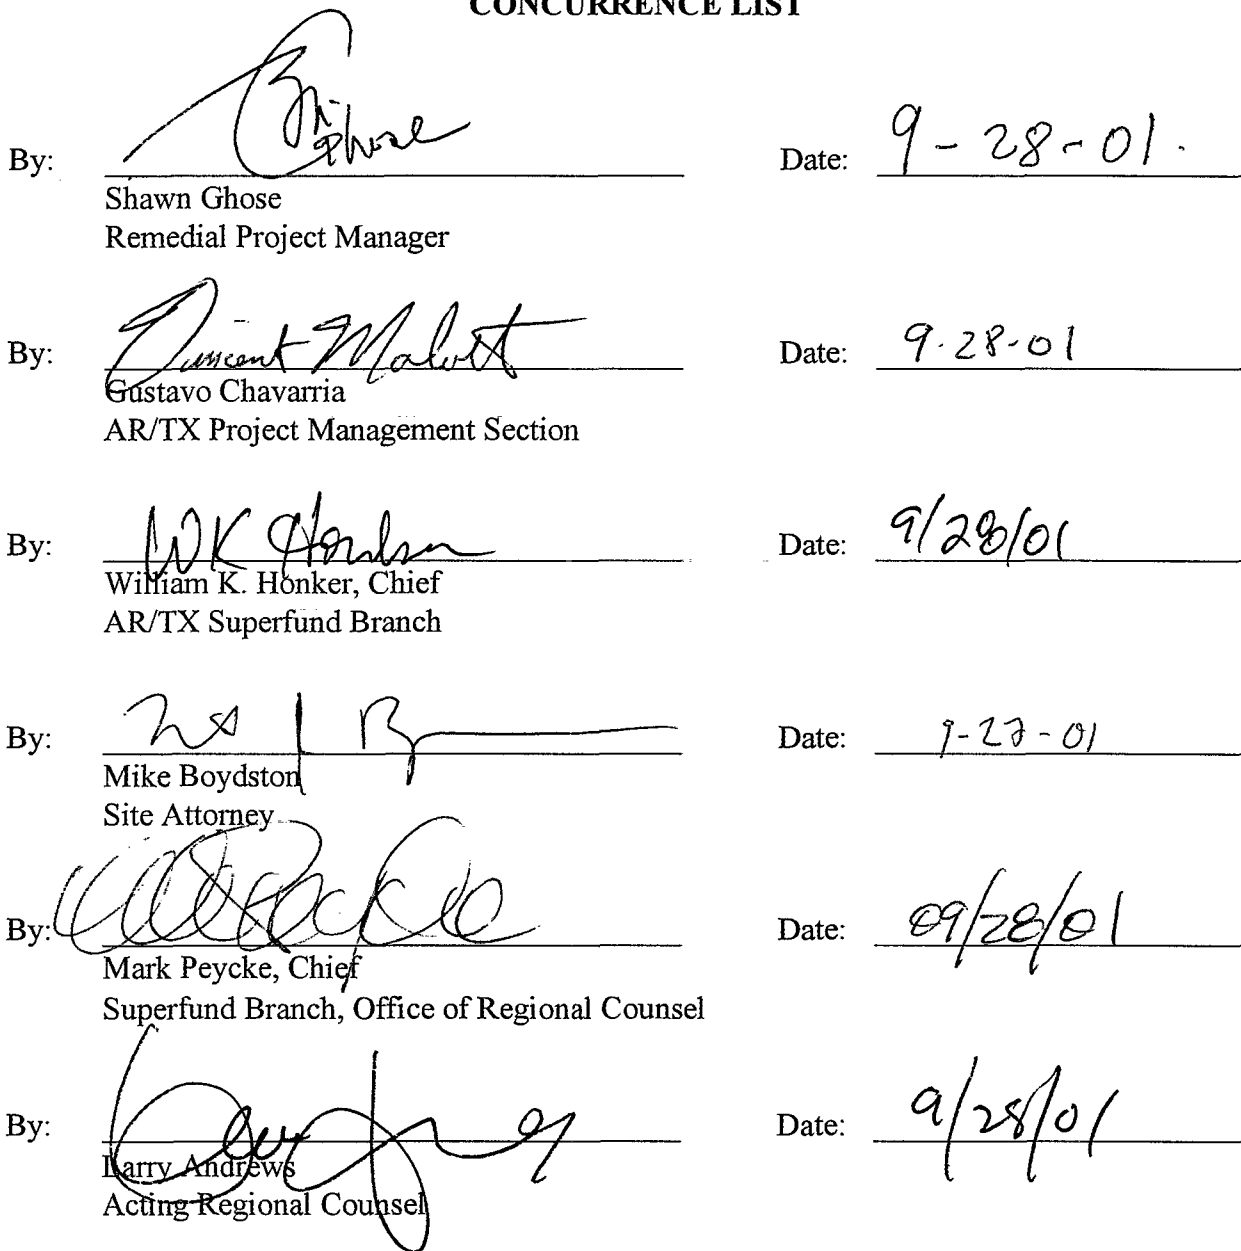 CONCURRENCE LIST
By: Ghose Date: 9-28-01.
Shawn Ghose
Remedial Project Manager
By: Vincent Malott Date: 9-28-01
Gustavo Chavarria
AR/TX Project Management Section
By: WK Honker Date: 9/28/01
William K. Honker, Chief
AR/TX Superfund Branch
By: Date: 9-27-01
Mike Boydston
Site Attorney
By: Date: 09/28/01
Mark Peycke, Chief
Superfund Branch, Office of Regional Counsel
By: Date: 9/28/01
Larry Andrews
Acting Regional Counsel